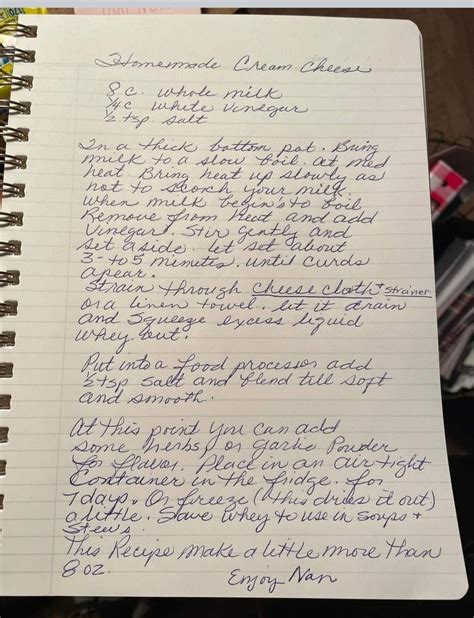 Homemade Cream Cheese
8 c. whole milk
1/4 c white Vinegar
1/2 tsp salt
In a thick bottom pot. Bring
milk to a slow boil. at med
heat. Bring heat up slowly as
not to scorch your milk.
when milk begin's to boil
Remove from heat and add
Vinegar. Stir gently and
set aside. let set about
3- to 5 minutes. until curds
apear.
Strain through cheese cloth + strainer
or a linen towel. let it drain
and squeeze excess liquid
whey out.
Put into a food processor add
1/2 tsp salt and blend till soft
and smooth.
At this point you can add
some herbs, or garlic Powder
for flavor. Place in an air tight
Container in the fridge. for
7 days. Or freeze (this dries it out)
a little. Save whey to use in soups +
Stews.
This Recipe make a little more than
8 oz.
Enjoy Nan